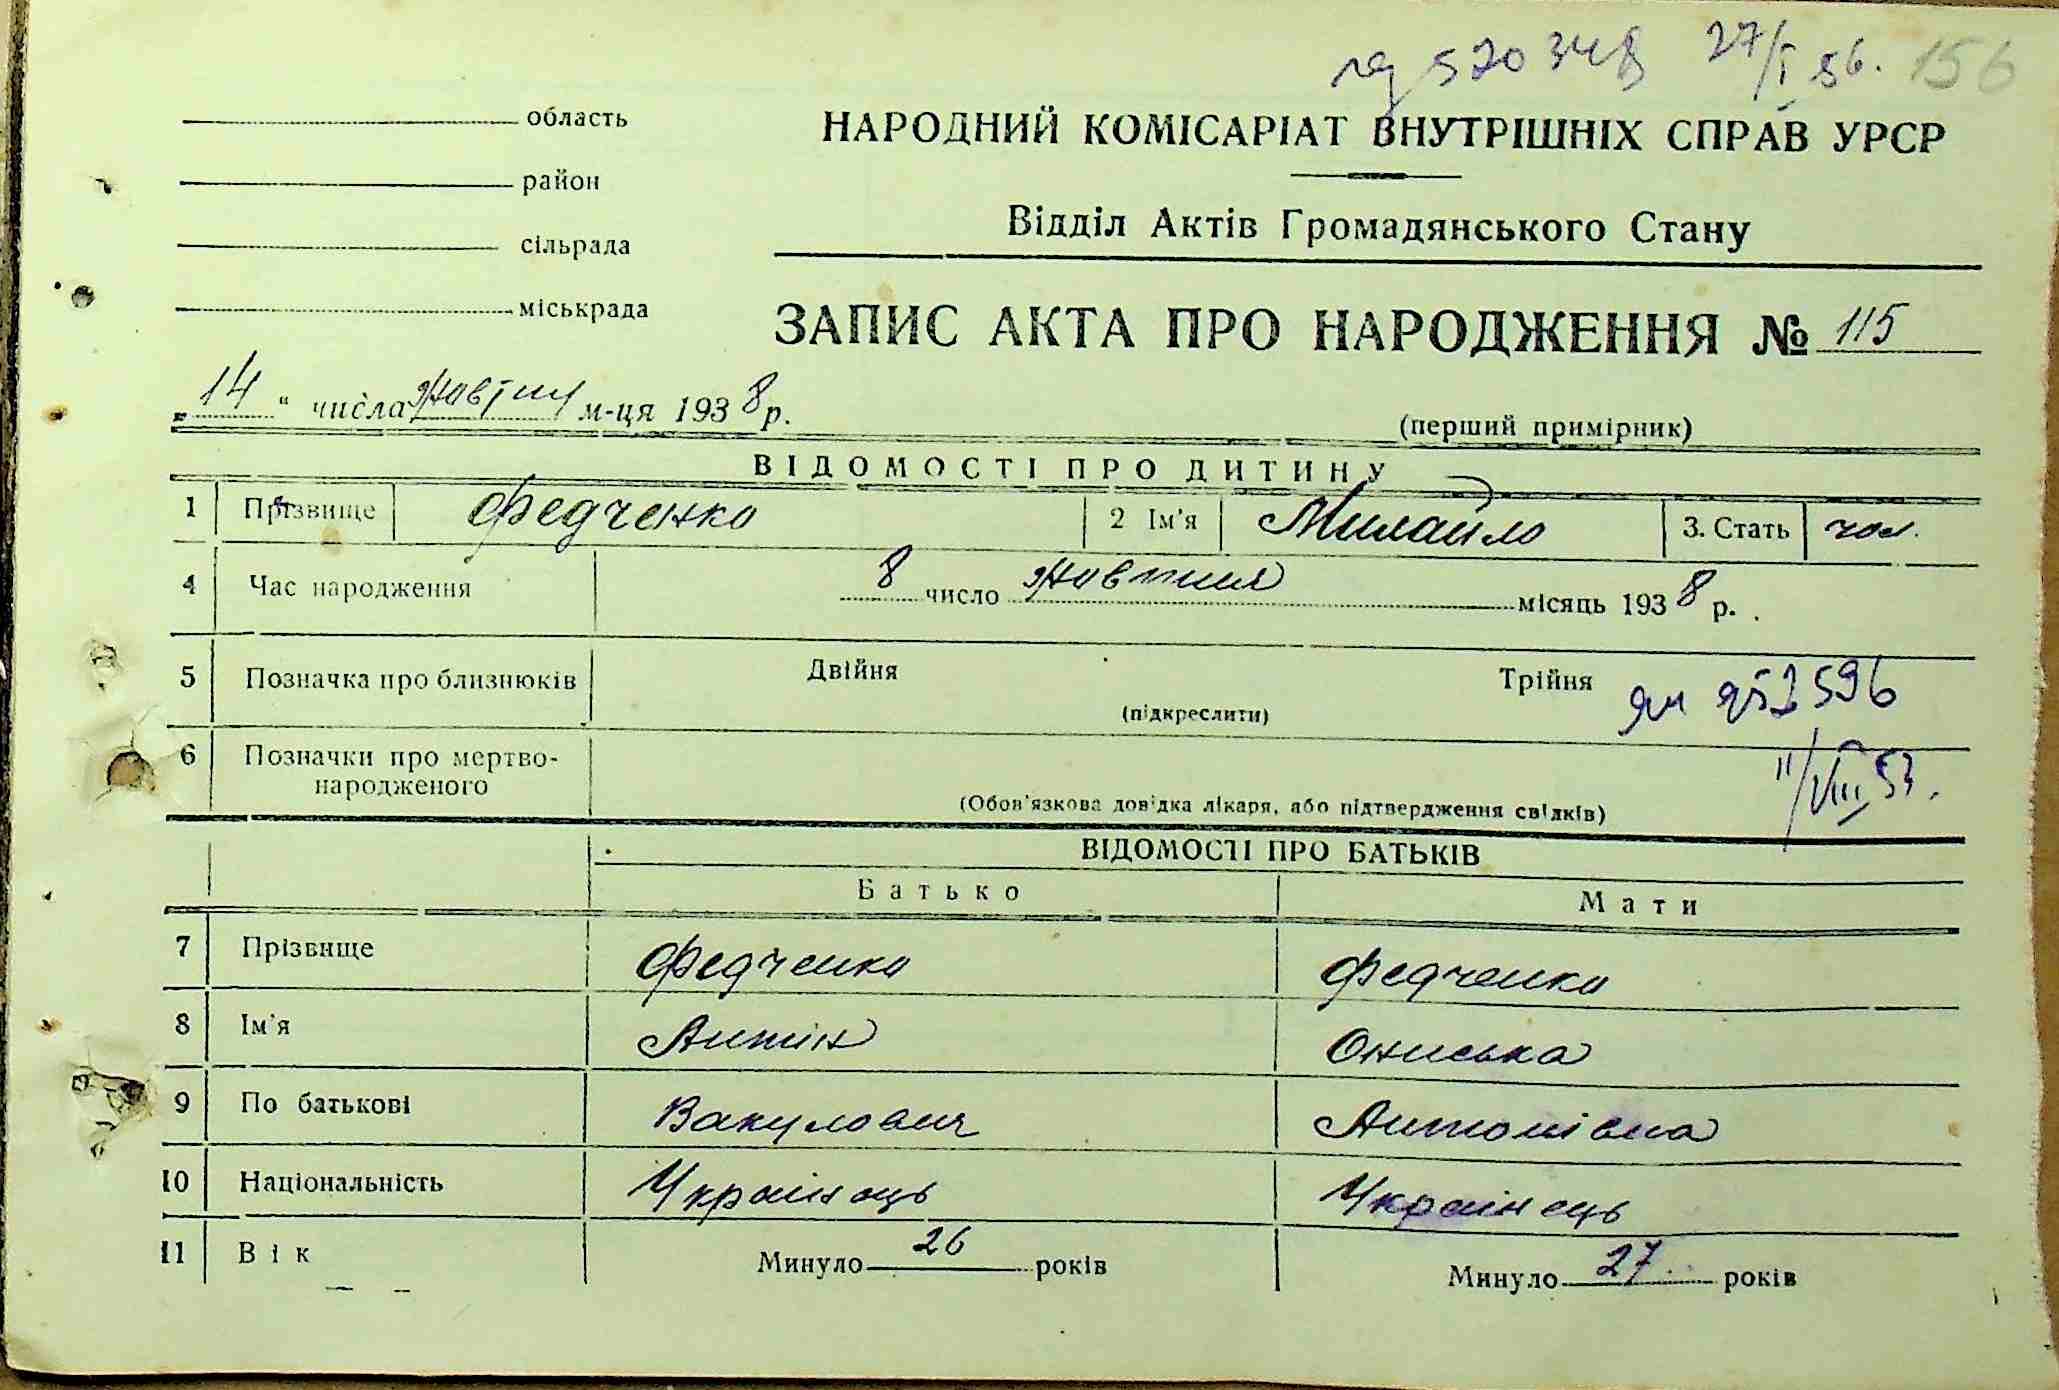 520348 27/I 56. 156
область
район
сільрада
міськрада
НАРОДНИЙ КОМІСАРІАТ ВНУТРІШНІХ СПРАВ УРСР
Відділ Актів Громадянського Стану
ЗАПИС АКТА ПРО НАРОДЖЕННЯ № 115
„14“ числа жовтня м-ця 1938 р.
(перший примірник)
ВІДОМОСТІ ПРО ДИТИНУ
1 Прізвище Федченко 2 Ім'я Михайло 3. Стать чол.
4 Час народження 8 число жовтня місяць 1938 р.
5 Позначка про близнюків Двійня Трійня
(підкреслити)
6 Позначки про мертво-
народженого
11/VIII 53.
(Обов'язкова довідка лікаря, або підтвердження свідків)
ВІДОМОСТІ ПРО БАТЬКІВ
Батько Мати
7 Прізвище Федченко Федченко
8 Ім'я Антін Ониська
9 По батькові Вакулович Антонівна
10 Національність Українець Українець
11 Вік Минуло 26 років Минуло 27 років